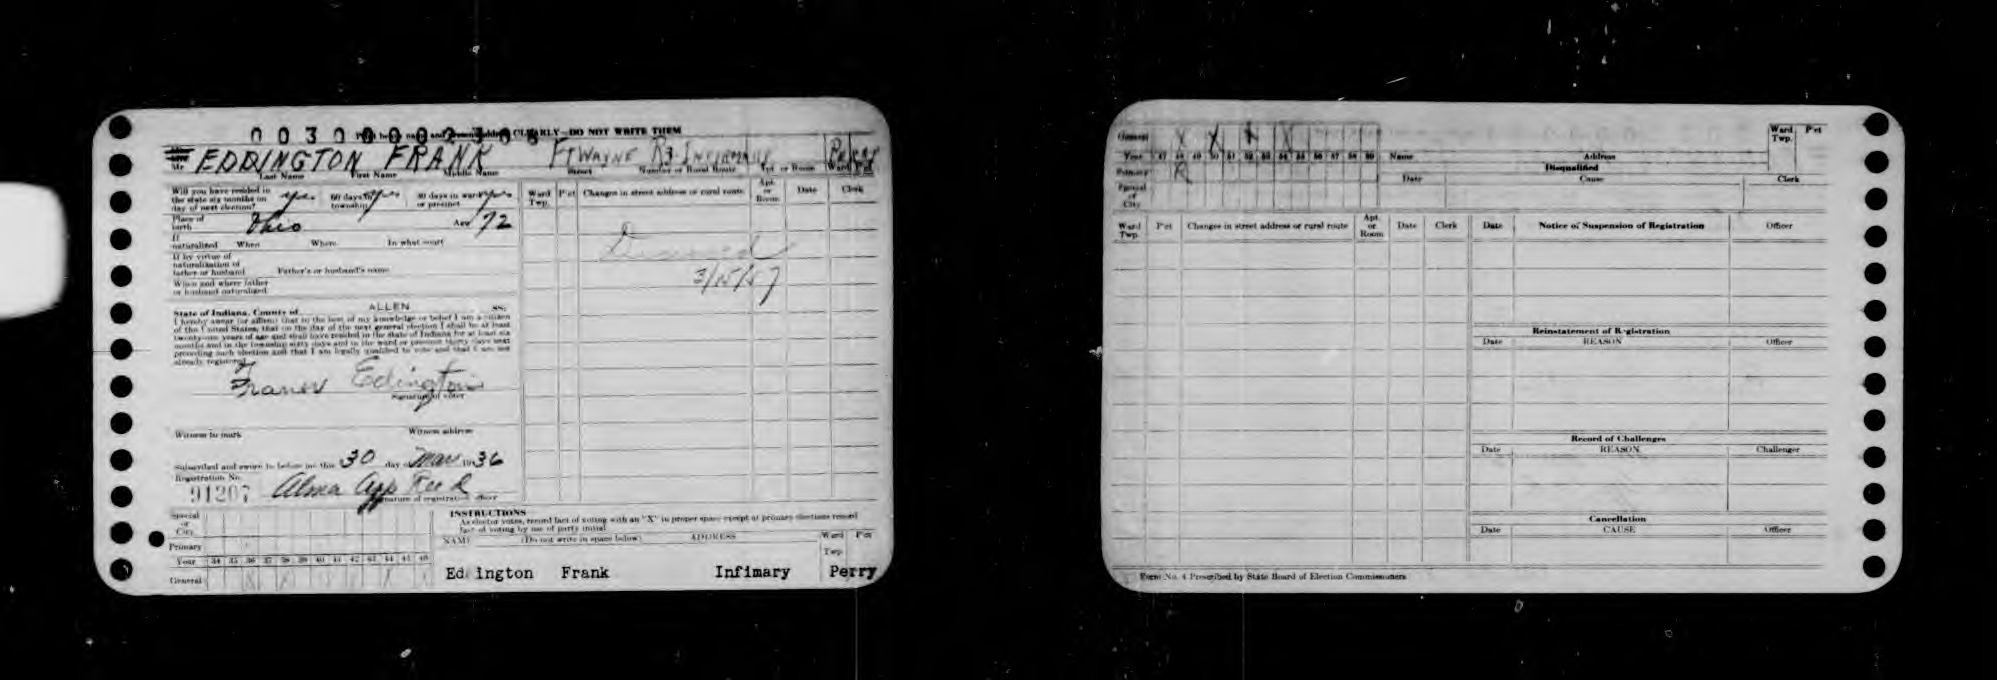 003000002308
CLEARLY—DO NOT WRITE THEM
Mr. EDDINGTON FRANK FT WAYNE R3 INFIRMARY
Last Name First Name Middle Name Street Number or Rural Route Apt. or Room Ward
Will you have resided in the state six months on day of next election? yes 60 days in township yes 30 days in ward or precinct yes
Place of birth Ohio Age 72
If naturalized When Where In what court
If by virtue of naturalization of father or husband Father's or husband's name
When and where father or husband naturalized
State of Indiana, County of ALLEN ss.
I hereby swear (or affirm) that to the best of my knowledge or belief I am a citizen
of the United States, that on the day of the next general election I shall be at least
twenty-one years of age and shall have resided in the state of Indiana for at least six
months and in the township sixty days and in the ward or precinct thirty days next
preceding such election and that I am legally qualified to vote and that I am not
already registered.
Edington
Signature of voter
Witness to mark Witness address
Subscribed and sworn to before me this 30 day of Mar 1936
Registration No.
91207 Alma App Reed
Signature of registration officer
Special or City
Primary
Year 34 35 36 37 38 39 40 41 42 43 44 45 46
General X X
Ward Twp. P'ct Changes in street address or rural route Apt. or Room Date Clerk
3/15/57
INSTRUCTIONS
As elector votes, record fact of voting with an "X" in proper space except at primary elections record
fact of voting by use of party initial
NAME (Do not write in space below) ADDRESS Ward P'ct
Twp.
Ed ington Frank Infimary Perry
General X X X X
Year 47 48 49 50 51 52 53 54 55 56 57 58 59 60 Name Address Ward Twp. P'ct
Primary R
Disqualified
Date Cause Clerk
Special or City
Ward Twp. P'ct Changes in street address or rural route Apt. or Room Date Clerk
Date Notice of Suspension of Registration Officer
Reinstatement of Registration
Date REASON Officer
Record of Challenges
Date REASON Challenger
Cancellation
Date CAUSE Officer
Form No. 4 Prescribed by State Board of Election Commissioners